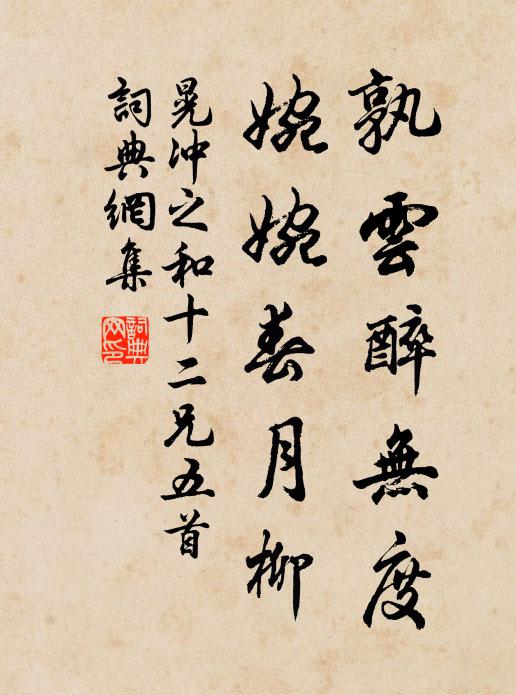 孰雲醉無度
婉婉春月柳
晁沖之和十二兄五首
詞典網集
詞典網印